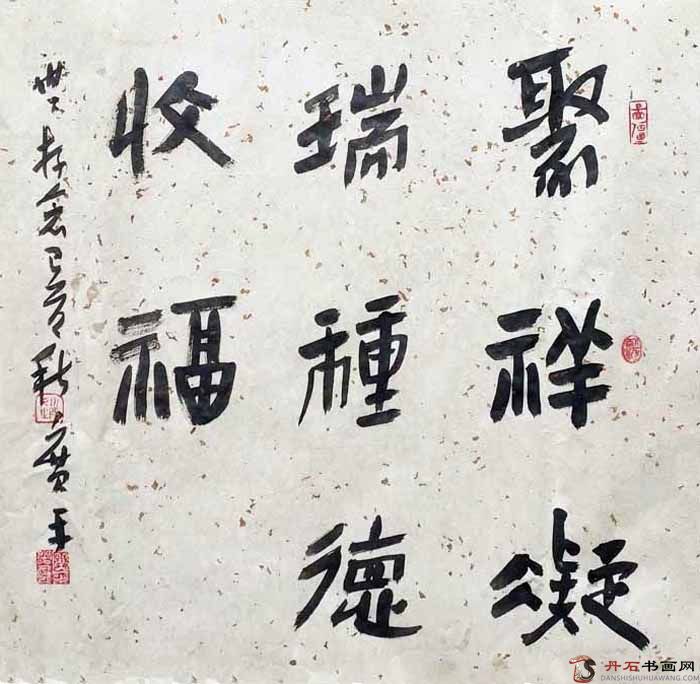 聚祥凝
瑞種德
收福
存念己亥秋广平
丹石书画网
DANSHISHUHUAWANG.COM